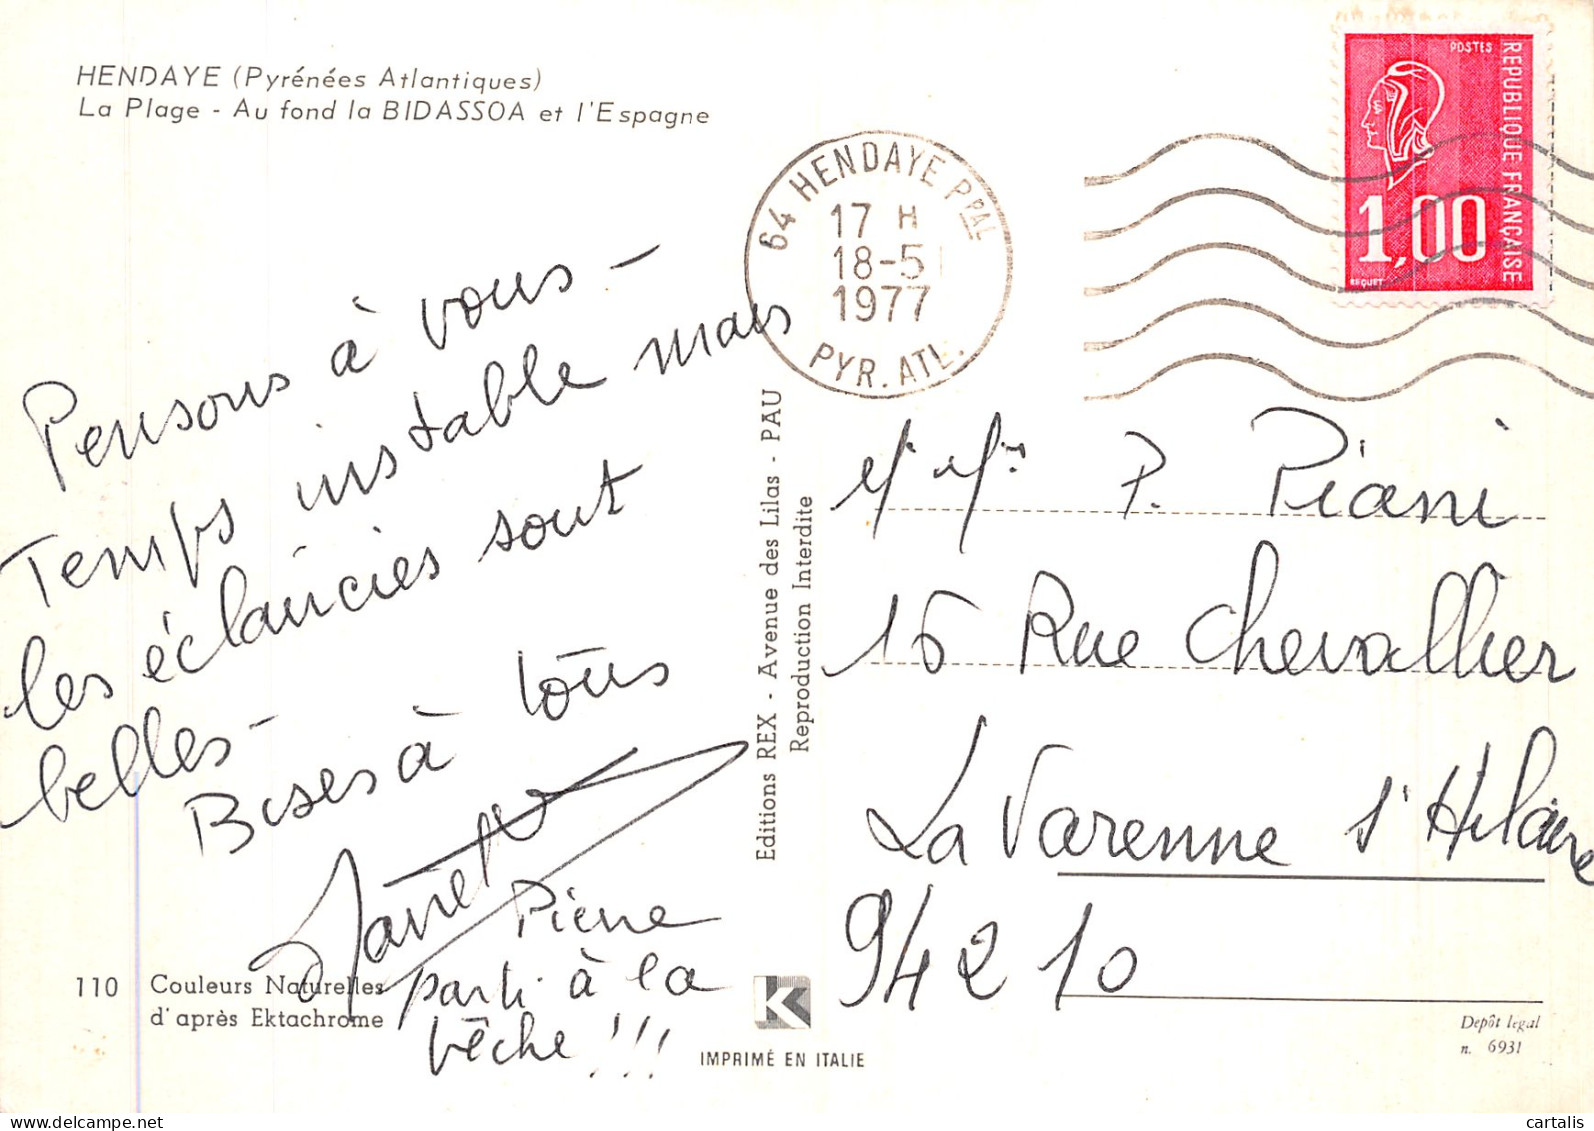 HENDAYE (Pyrénées Atlantiques)
La Plage - Au fond la BIDASSOA et l'Espagne
POSTES
REPUBLIQUE FRANÇAISE
1,00
BEQUET
64 HENDAYE PPAL
17 H
18-5
1977
PYR. ATL.
Pensons à vous -
Temps instable mais
les éclaircies sont
belles -
Bises à tous
Pierre
parti à la
pêche !!!
Editions REX - Avenue des Lilas - PAU
Reproduction Interdite
P. Piani
Rue Chevallier
La Varenne St Hilaire
94210
110 Couleurs Naturelles
d'après Ektachrome
K
IMPRIMÉ EN ITALIE
Depôt legal
n. 6931
cartalis
www.delcampe.net